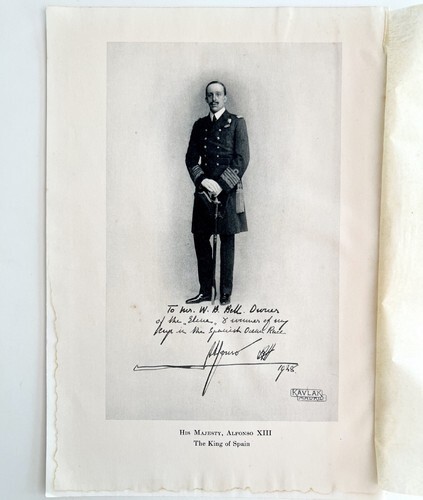 To Mr. W. B. Bell. Owner
of the "Elena", & winner of my
Cup in the Spanish Ocean Race
Alfonso RH
1928.
KAVLAK
MADRID
HIS MAJESTY, ALFONSO XIII
The King of Spain